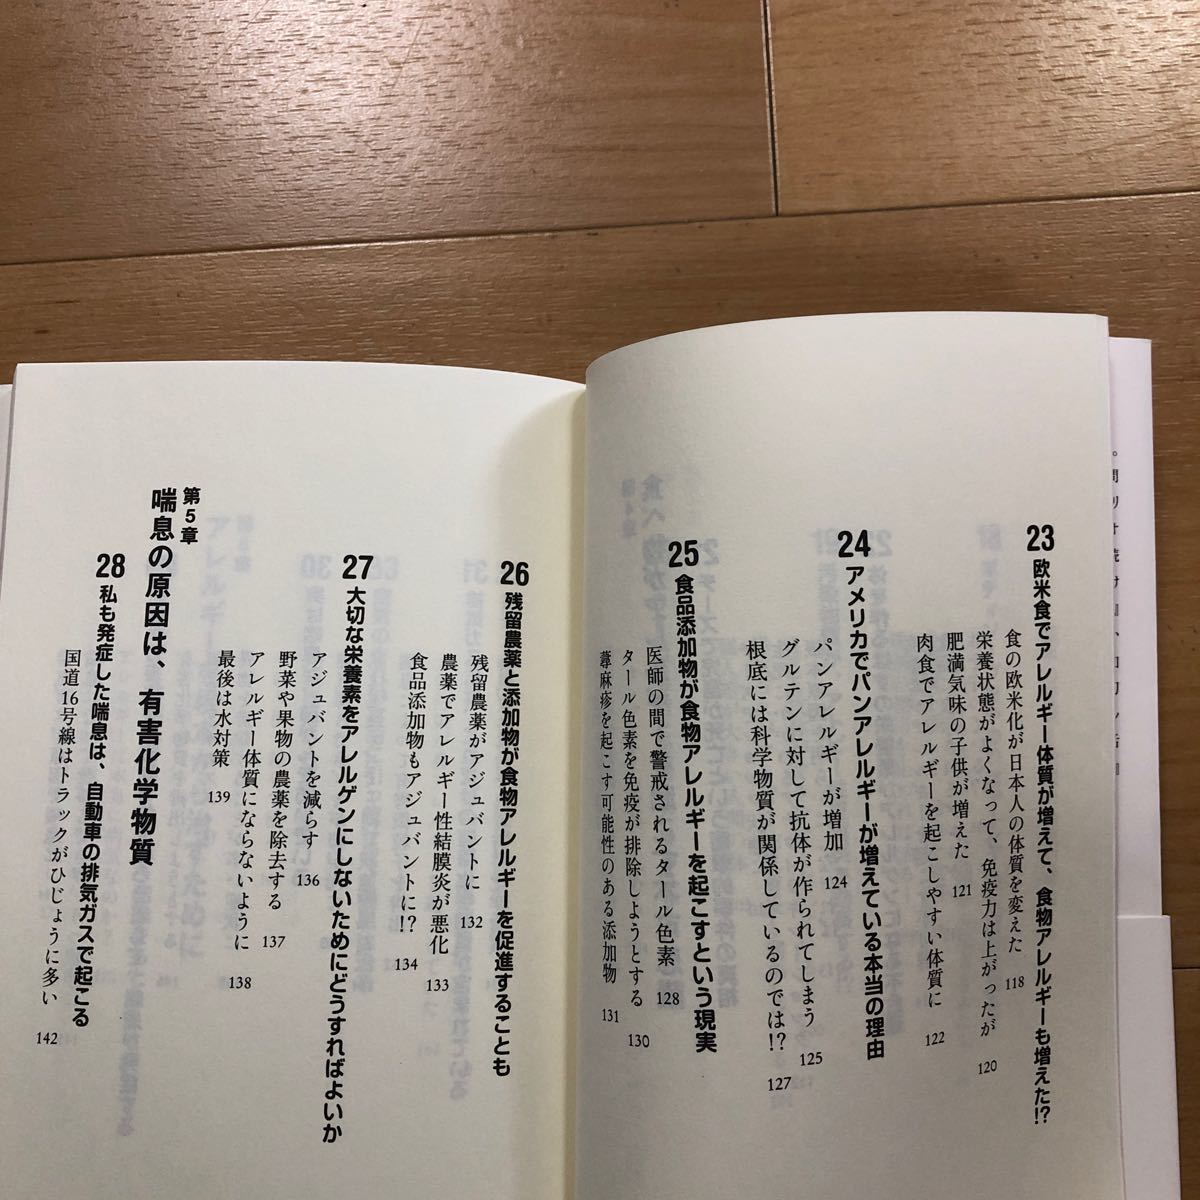 23 欧米食でアレルギー体質が増えて、食物アレルギーも増えた!?
食の欧米化が日本人の体質を変えた 118
栄養状態がよくなって、免疫力は上がったが 120
肥満気味の子供が増えた 121
肉食でアレルギーを起こしやすい体質に 122
24 アメリカでパンアレルギーが増えている本当の理由
パンアレルギーが増加 124
グルテンに対して抗体が作られてしまう 125
根底には科学物質が関係しているのでは!? 127
25 食品添加物が食物アレルギーを起こすという現実
医師の間で警戒されるタール色素 128
タール色素を免疫が排除しようとする 130
蕁麻疹を起こす可能性のある添加物 131
26 残留農薬と添加物が食物アレルギーを促進することも
残留農薬がアジュバントに 132
農薬でアレルギー性結膜炎が悪化 133
食品添加物もアジュバントに!? 134
27 大切な栄養素をアレルゲンにしないためにどうすればよいか
アジュバントを減らす 136
野菜や果物の農薬を除去する 137
アレルギー体質にならないように 138
最後は水対策 139
第5章
喘息の原因は、有害化学物質
28 私も発症した喘息は、自動車の排気ガスで起こる
国道16号線はトラックがひじょうに多い 142